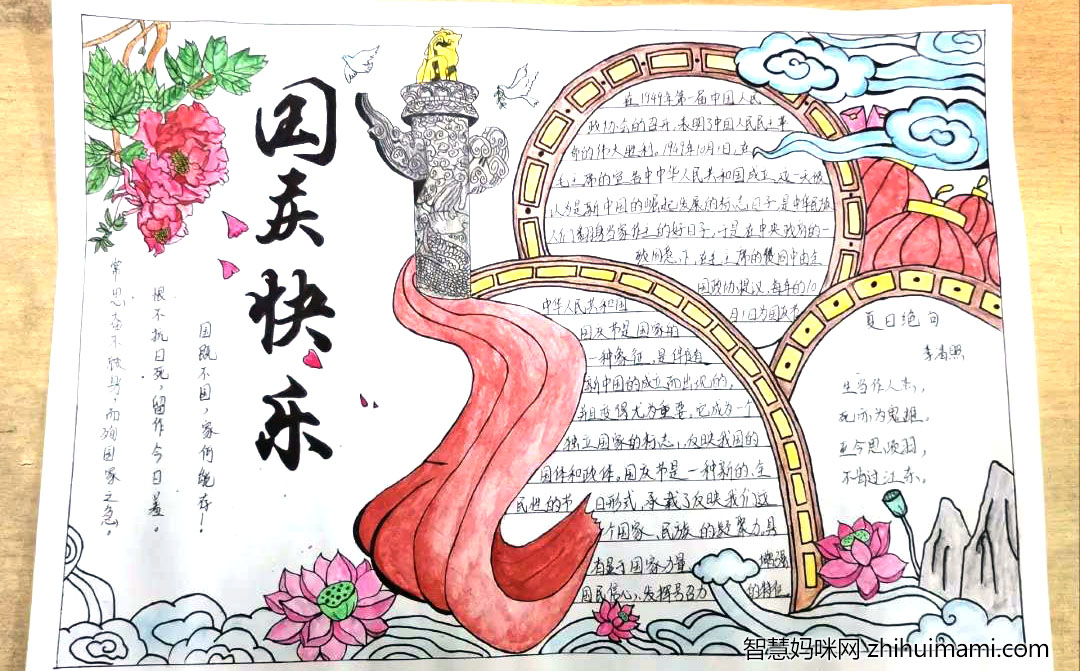 国庆快乐
常思奋不顾身，而殉国家之急。
恨不抗日死，留作今日羞。
国既不国，家何能存！
在1949年第一届中国人民
政协会的召开，表明了中国人民民主革
命的伟大胜利。1949年10月1日，在
毛主席的宣告中中华人民共和国成立，这一天被
认为是新中国的崛起发展的标志日子，是中华民族
人们翻身当家作主的好日子，于是在中央政府的一
致同意下，在毛主席的
国政协提议，每年的10
月1日为国庆节
中华人民共和国
国庆节是国家的
一种象征，是伴随
新中国的成立而出现的，
并且变得尤为重要。它成为一个
独立国家的标志，反映我国的
国体和政体。国庆节是一种新的、全
民性的节日形式，承载了反映我们这
个国家、民族的凝聚力，具
有显于国家力量、增强
国民信心，发挥号召力的特征
夏日绝句
李清照
生当作人杰，
死亦为鬼雄。
至今思项羽，
不肯过江东。
智慧妈咪网-zhihuimami.com